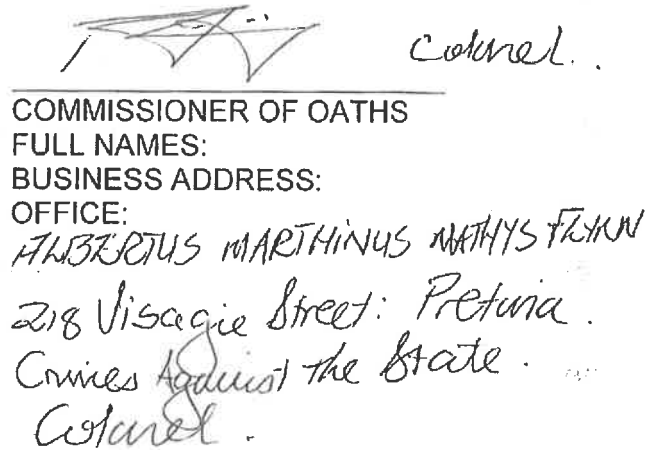 Colonel..
COMMISSIONER OF OATHS
FULL NAMES:
BUSINESS ADDRESS:
OFFICE:
ALBERTUS MARTHINUS MATHYS FLYNN
218 Visagie Street: Pretoria.
Crimes Against the State.
Colonel.